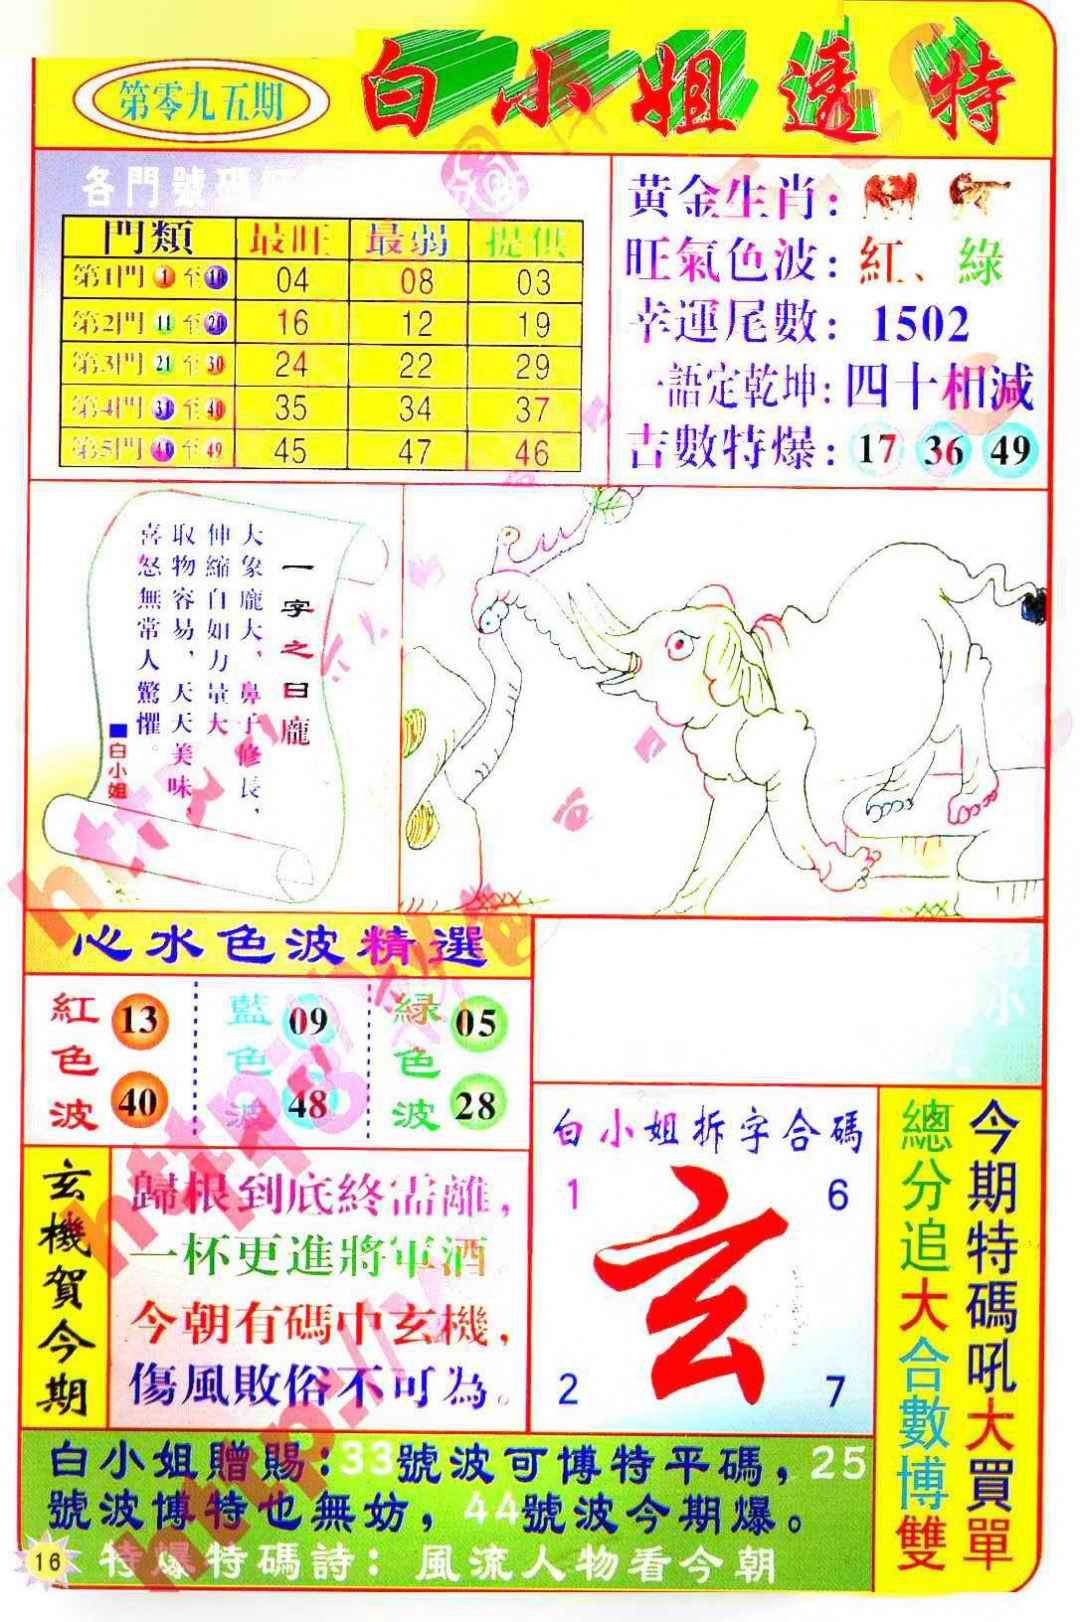 第零九五期
白小姐透特
各門號碼
門類 最旺 最弱 提供
第1門 1 至 10 04 08 03
第2門 11 至 20 16 12 19
第3門 21 至 30 24 22 29
第4門 31 至 40 35 34 37
第5門 40 至 49 45 47 46
黃金生肖：
旺氣色波：紅、綠
幸運尾數：1502
一語定乾坤：四十相減
吉數特爆：17 36 49
一字之曰龐
大象龐大，鼻子修長，
伸縮自如力量大
取物容易，天天美味，
喜怒無常人驚懼。
■白小姐
心水色波精選
紅色波 13 40
藍色波 09 48
緑色波 05 28
玄機賀今期
歸根到底終需離，
一杯更進將軍酒
今朝有碼中玄機，
傷風敗俗不可為。
白小姐拆字合碼
1 6
玄
2 7
今期特碼吼大買單
總分追大合數博雙
白小姐贈賜：33號波可博特平碼，25
號波博特也無妨，44號波今期爆。
特爆特碼詩：風流人物看今朝
16